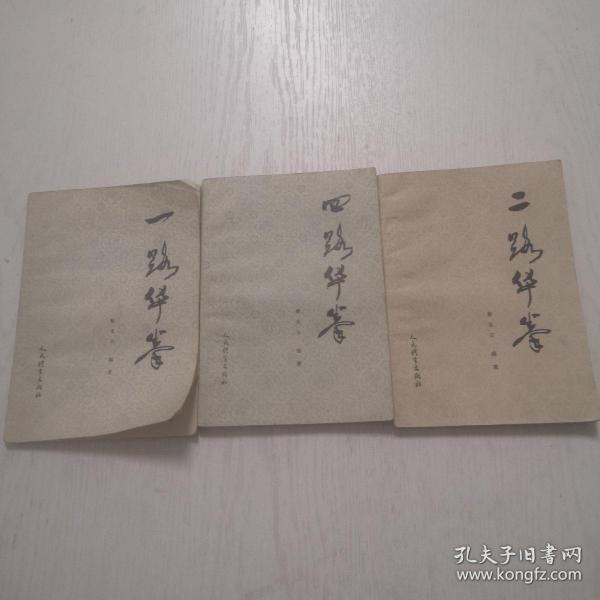 一路华拳
蔡龙云 编著
人民体育出版社
四路华拳
蔡龙云 编著
人民体育出版社
二路华拳
蔡龙云 编著
人民体育出版社
孔夫子旧书网
www.kongfz.com